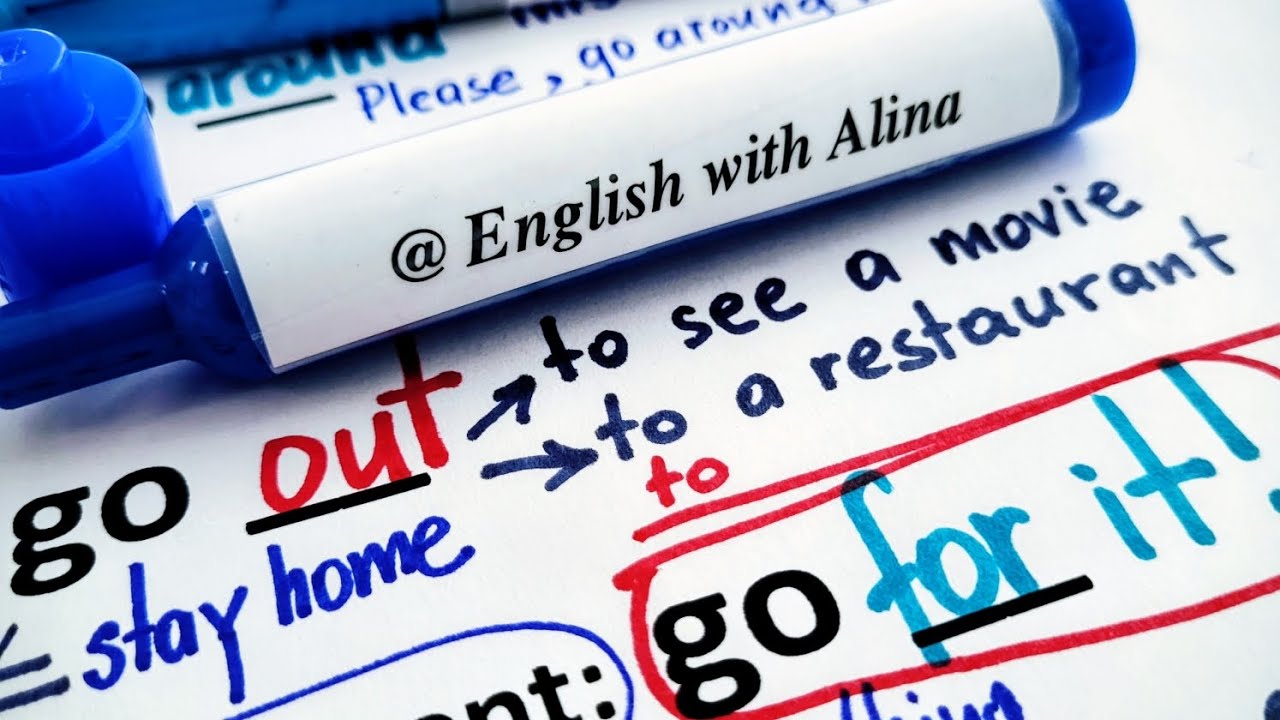 around
Please, go around
@ English with Alina
go out → to see a movie
→ to a restaurant
to
stay home
go for it!